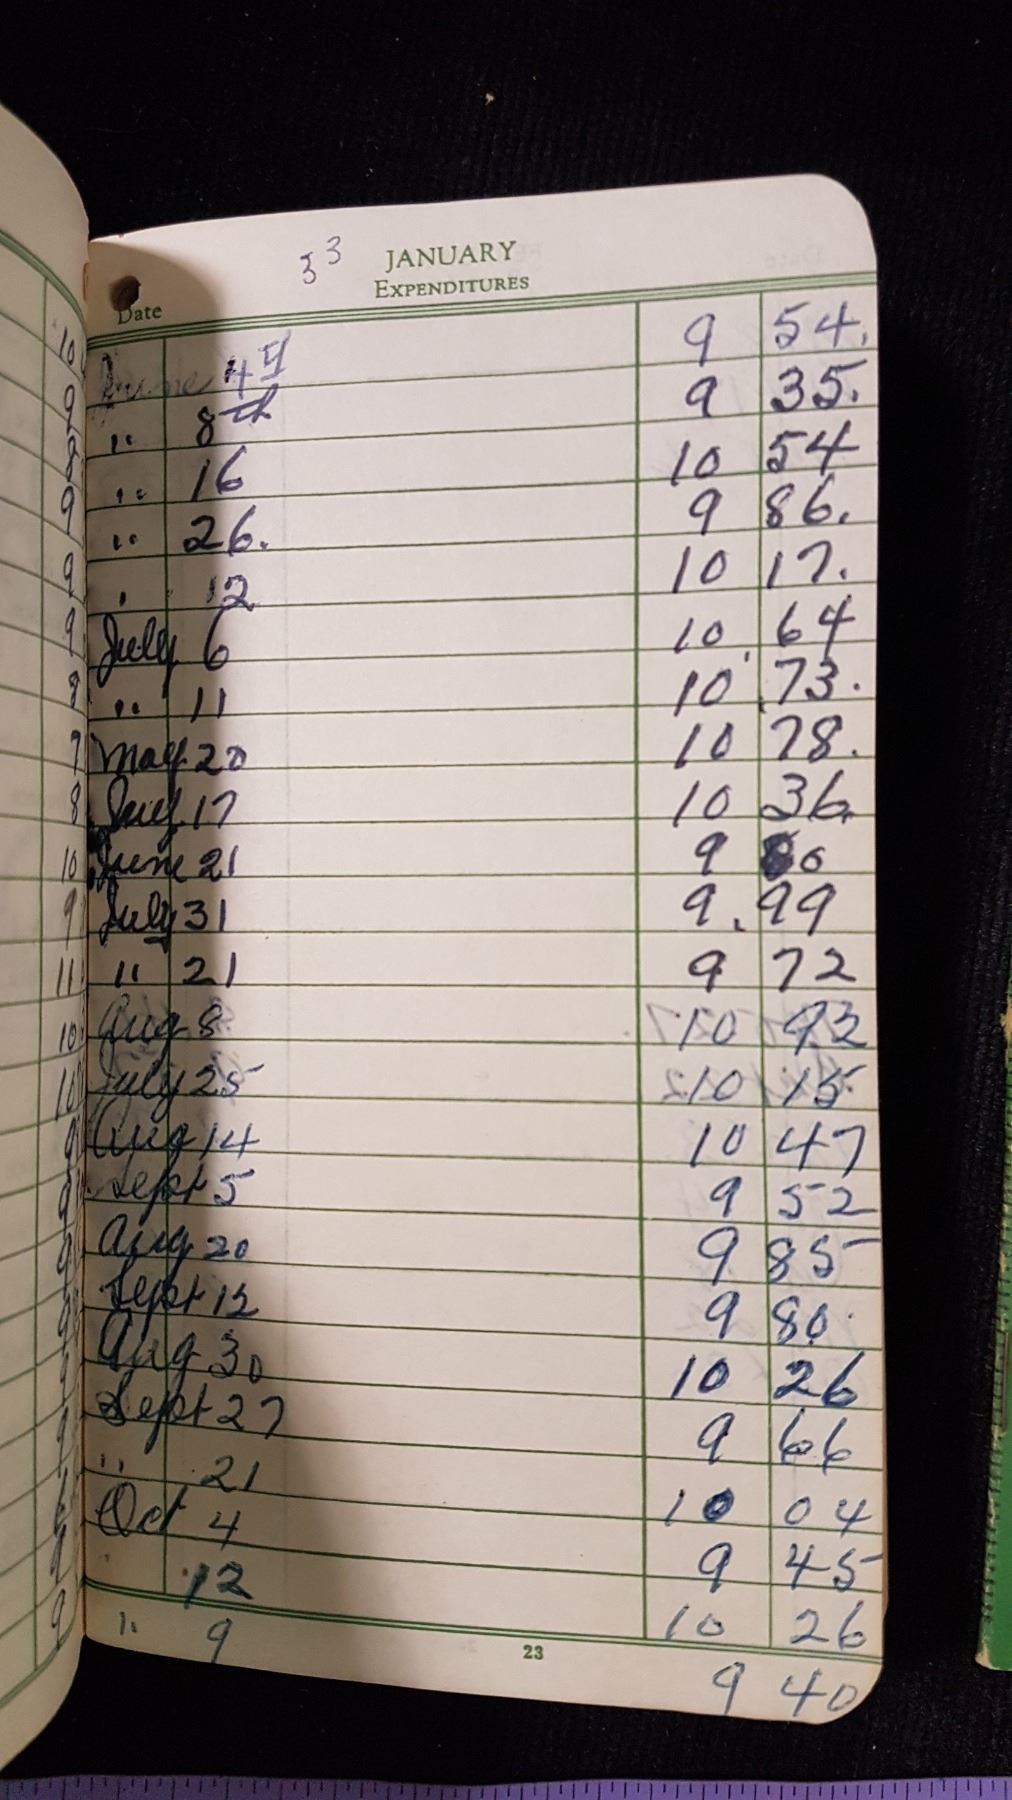 33 JANUARY
EXPENDITURES
Date
June 4th 9 54.
" 8th 9 35.
" 16 10 54
" 26. 9 86.
" 12 10 17.
July 6 10 64
" 11 10 73.
May 20 10 78.
July 17 10 36.
June 21 9 80
July 31 9.99
" 21 9 72
Aug 8 10 92
July 25 10 15
Aug 14 10 47
Sept 5 9 52
Aug 20 9 85
Sept 12 9 80
Aug 30 10 26
Sept 27 9 66
" 21 10 04
Oct 4 9 45
" 12 10 26
" 9 9 40
23
10
9
8
9
9
9
8
7
8
10
9
11
10
10
9
9
9
9